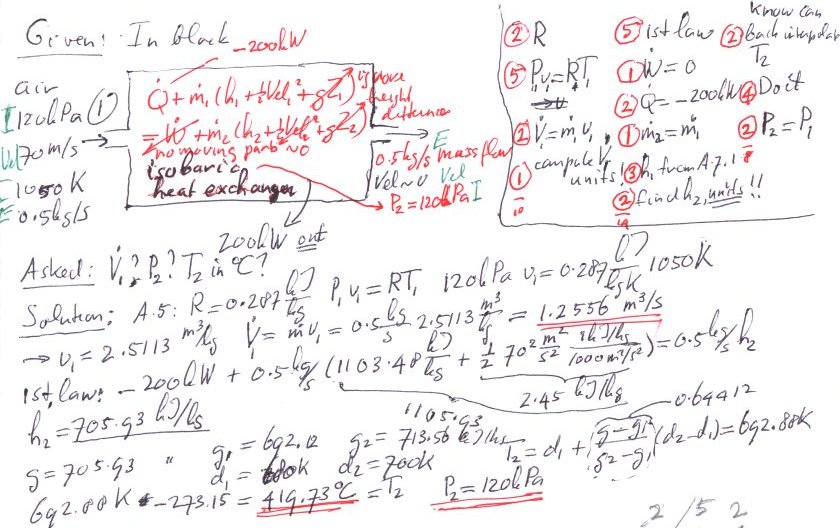 Given: In black
-200kW
air
120kPa ①
Vel 70 m/s
1050 K
0.5kg/s
Q̇ + ṁ₁(h₁+½Vel₁²+gZ₁)
= Ẇ + ṁ₂(h₂+½Vel₂²+gZ₂)
no moving parts ~0
ignore
height
difference
isobaric
heat exchanger
E
0.5kg/s mass flow
Vel~0 Vel
P₂=120kPa I
200kW out
② R
⑤ P₁v₁=RT₁
② V̇=ṁ₁v₁,
compute V̇,
units!
①
10
⑤ 1st law
① Ẇ=0
② Q̇=-200kW
① ṁ₂=ṁ₁
③ h₁ from A.7.1
② find h₂, units!!
know can
② back interpolate
T₂
④ Do it
② P₂=P₁
8
Asked: V̇₁? P₂? T₂ in °C?
Solution: A.5: R=0.287 kJ/kg P₁v₁=RT₁ 120kPa v₁=0.287 kJ/kgK 1050K
→ v₁=2.5113 m³/kg V̇=ṁv₁=0.5 kg/s 2.5113 m³/kg = 1.2556 m³/s
1st law: -200kW + 0.5 kg/s (1103.48 kJ/kg + ½ 70² m²/s² 1kJ/kg / 1000m²/s²) = 0.5 kg/s h₂
2.45 kJ/kg
1105.93
h₂=705.93 kJ/kg
0.64412
g=705.93 " g₁=692.12 g₂=713.56 kJ/kg T₂=d₁+ (g-g₁)/(g₂-g₁) (d₂-d₁)=692.88K
d₁=680K d₂=700K
692.88K -273.15 = 419.73°C = T₂ P₂=120kPa
2 / 5 2